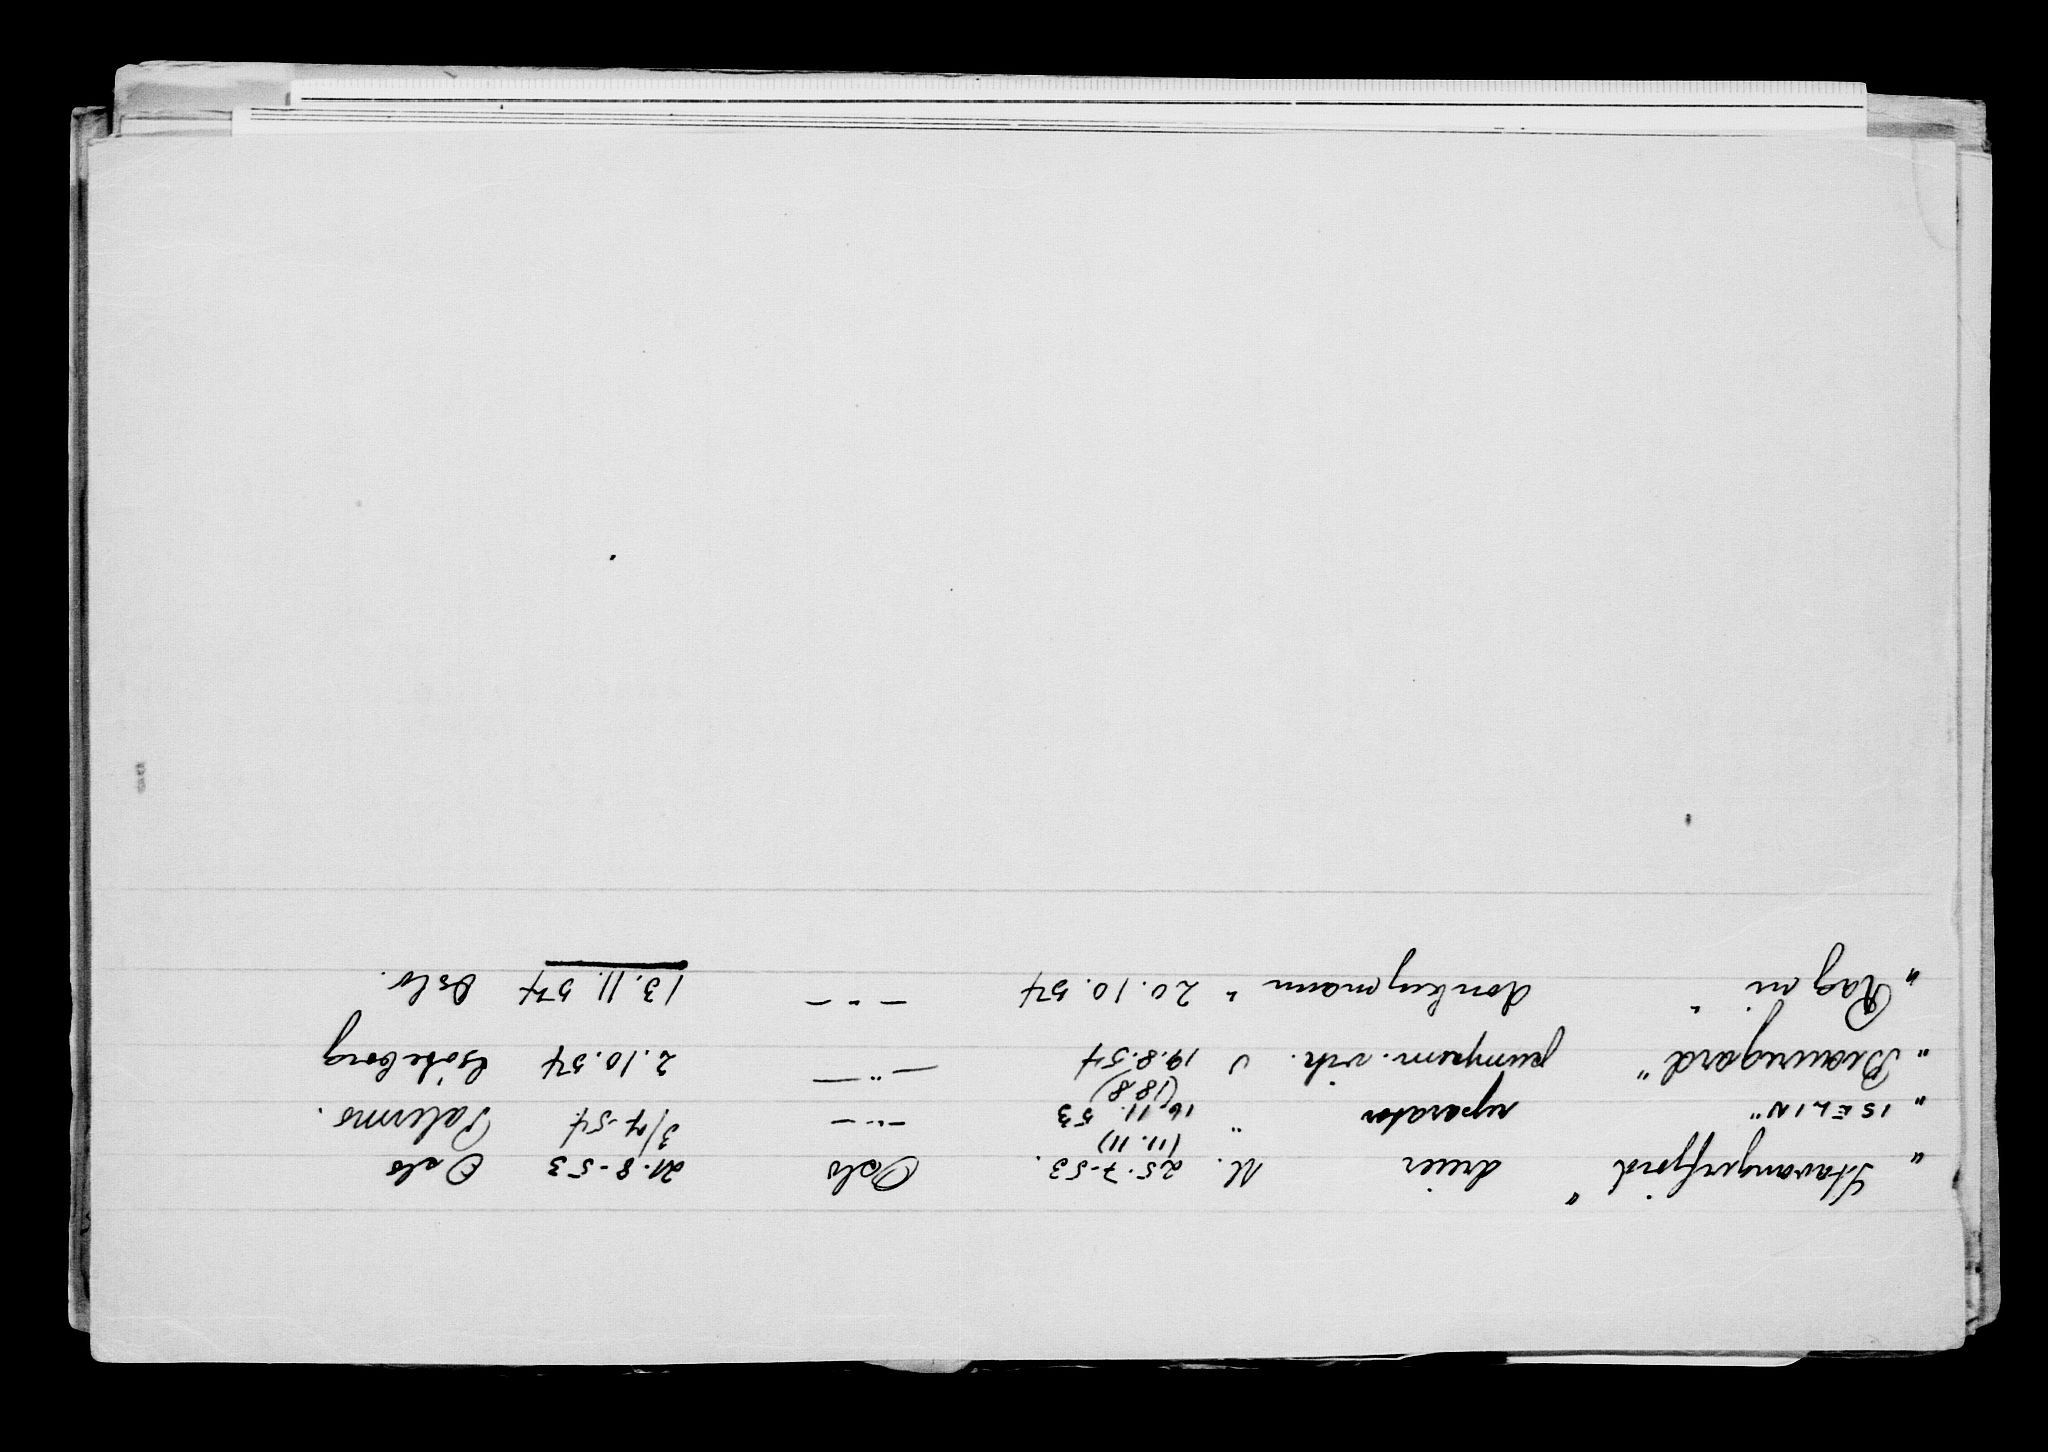 " Stavangerfjord " dreier M. 25.7.53. Oslo 21.8-53 Oslo
(11.11)
" ISELIN" reparatør " 16.11.53 -"- 3/7-54. Palermo.
(18.8)
" Beauregard" pumpem. vik. J 19.8.54 -"- 2.10.54 Göteborg
" Ragni " donkeymann " 20.10.54 -"- 13.11.54 Oslo.